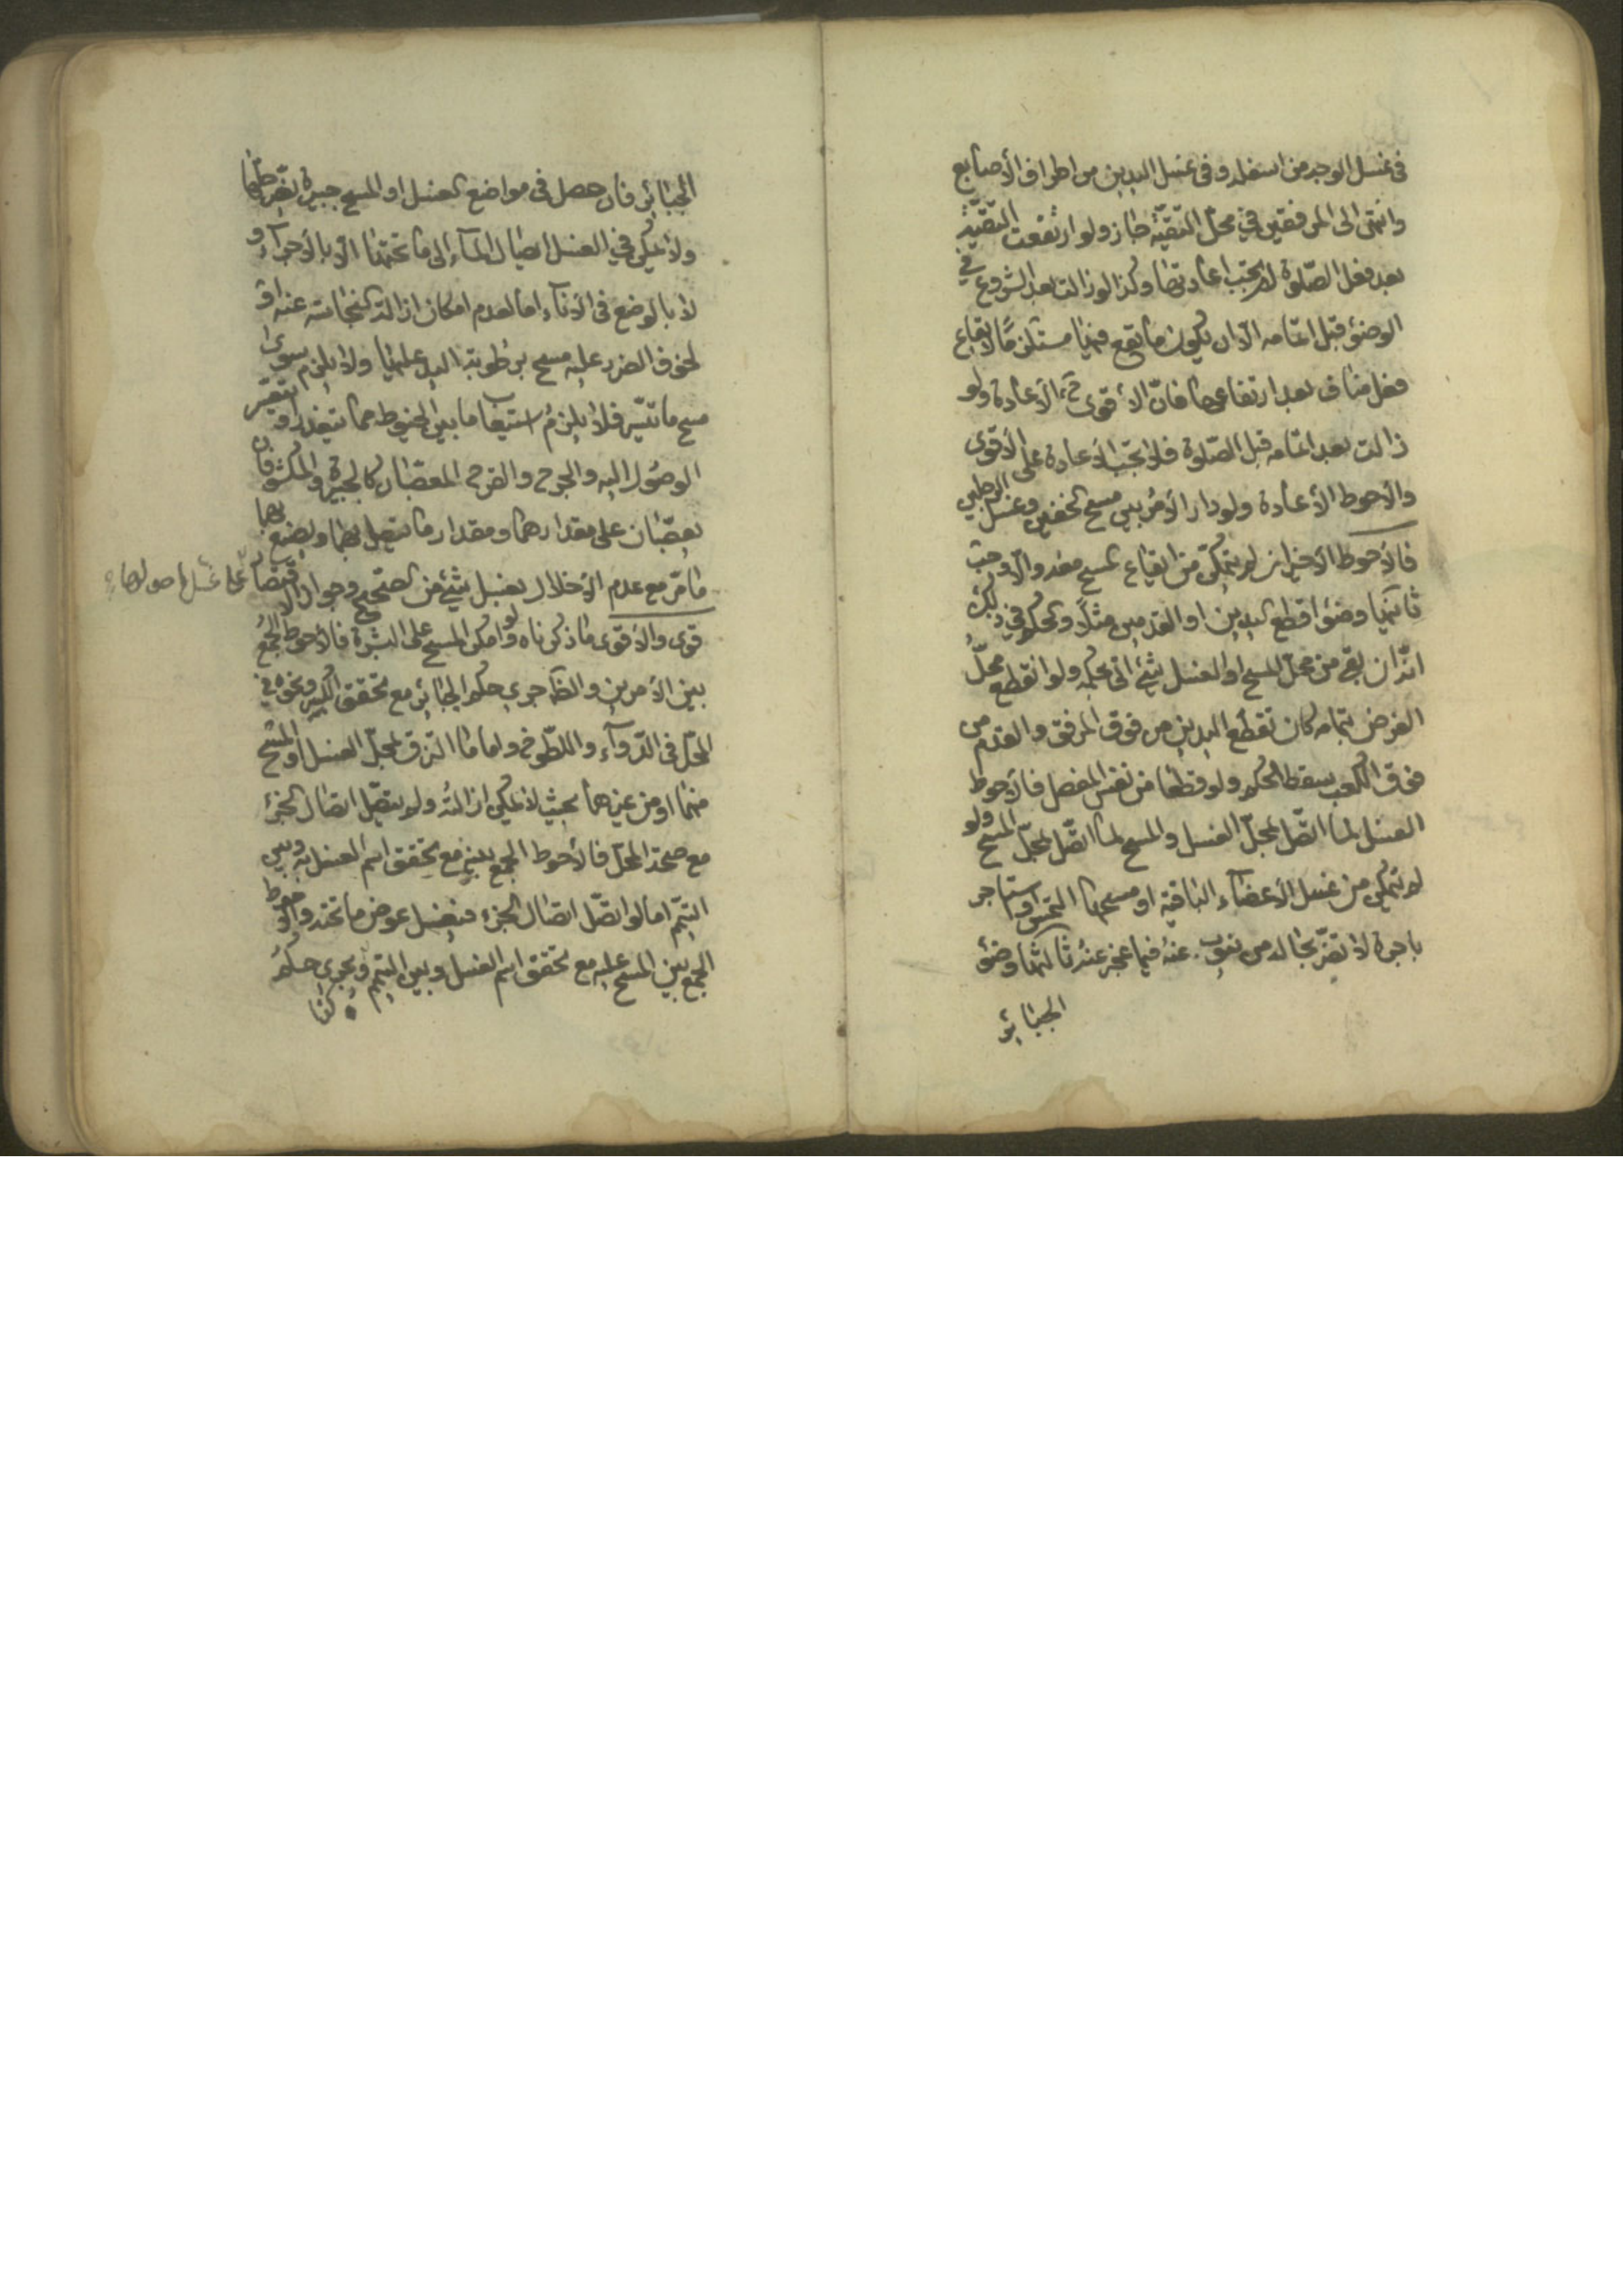 فى غسل الوجه من اسفله و فى غسل اليدين من اطراف الأصابع
وانتهى الى المرفقين فى محلّ التّقيّة جاز ولو ارتفعت التّقيّة
بعد فعل الصّلوة لم يجب اعادتها وكذا لو زالت بعد الشروع فى
الوضوء قبل اتمامه الّا ان يكون ما يقع فيها مستلزمًا لايقاع
فعل مناف بعد ارتفاعها فانّ الأقوى ح الأعادة ولو
زالت بعد اتمامه قبل الصّلوة فلا تجب الأعادة على الأقوى
والأحوط الأعادة ولو دار الأمر بين مسح الخفين وغسل الرجلين
فالأحوط الأخير ان لم يتمكّن من ايقاع المسح معه والّا وجب
ثانيها وضوء اقطع اليدين او القدمين مثلًا والحكم فى ذلك
انّه ان بقى من محلّ المسح او الغسل شئ اتى بحكمه ولو انقطع محلّ
الفرض بتمامه كان تقطع اليدين من فوق المرفق والقدم من
فوق الكعب سقط الحكم ولو قطعا من نفس المفصل فالأحوط
الغسل لما اتّصل بمحلّ الغسل والمسح لما اتّصل بمحلّ المسح ولو
لم يتمكن من غسل الأعضاء الباقية او مسحها التمس او استاجر
باجرة لا تضرّ بحاله من ينوب عنه فيما عجز عنه ثالثها وضوء
الجبائر
الجبائر فان حصل فى مواضع الغسل او المسح جبيرة يضرّ حلّها
ولا يمكن فى الغسل ايصال الماء الى ما تحتها الّا بالأجراء و
لا بالوضع فى الأناء اما لعدم امكان ازالة النجاسة عنه او
لخوف الضرر عليه مسح برطوبة اليد عليها ولا يلزم سوى
مسح ما تيسّر فلا يلزم استيعاب ما بين الخيوط مما يتعذر او يتعسّر
الوصول اليه والجرح والقرح المعصّبان كالجبيرة والمكشوفان
يعصّبان على مقدارهما ومقدار ما يتصل بهما ويصنع بهما
ما مرّ مع عدم الأخلال بغسل شئ من الصّحيح وجواز الاقتصار على غسل ما حولها
قوى والأقوى ما ذكرناه ولو امكن المسح على البشرة فالأحوط الجمع
بين الأمرين والظّ جرى حكم الجبائر مع تحقق الكسر ونحوه فى
المحلّ فى الدّواء واللطّوخ واما ما التزق بمحلّ الغسل او المسح
منهما او من غيرهما بحيث لا يمكن ازالته ولم يتصّل اتصال الجزء
مع صحة المحلّ فالأحوط الجمع بينه مع تحقق اسم الغسل به وبين
التيمّم اما لو اتصّل اتصال الجزء فيغسل عوض ما تحته والأحوط
الجمع بين المسح عليه مع تحقق اسم الغسل وبين التيمم ويجرى حكم